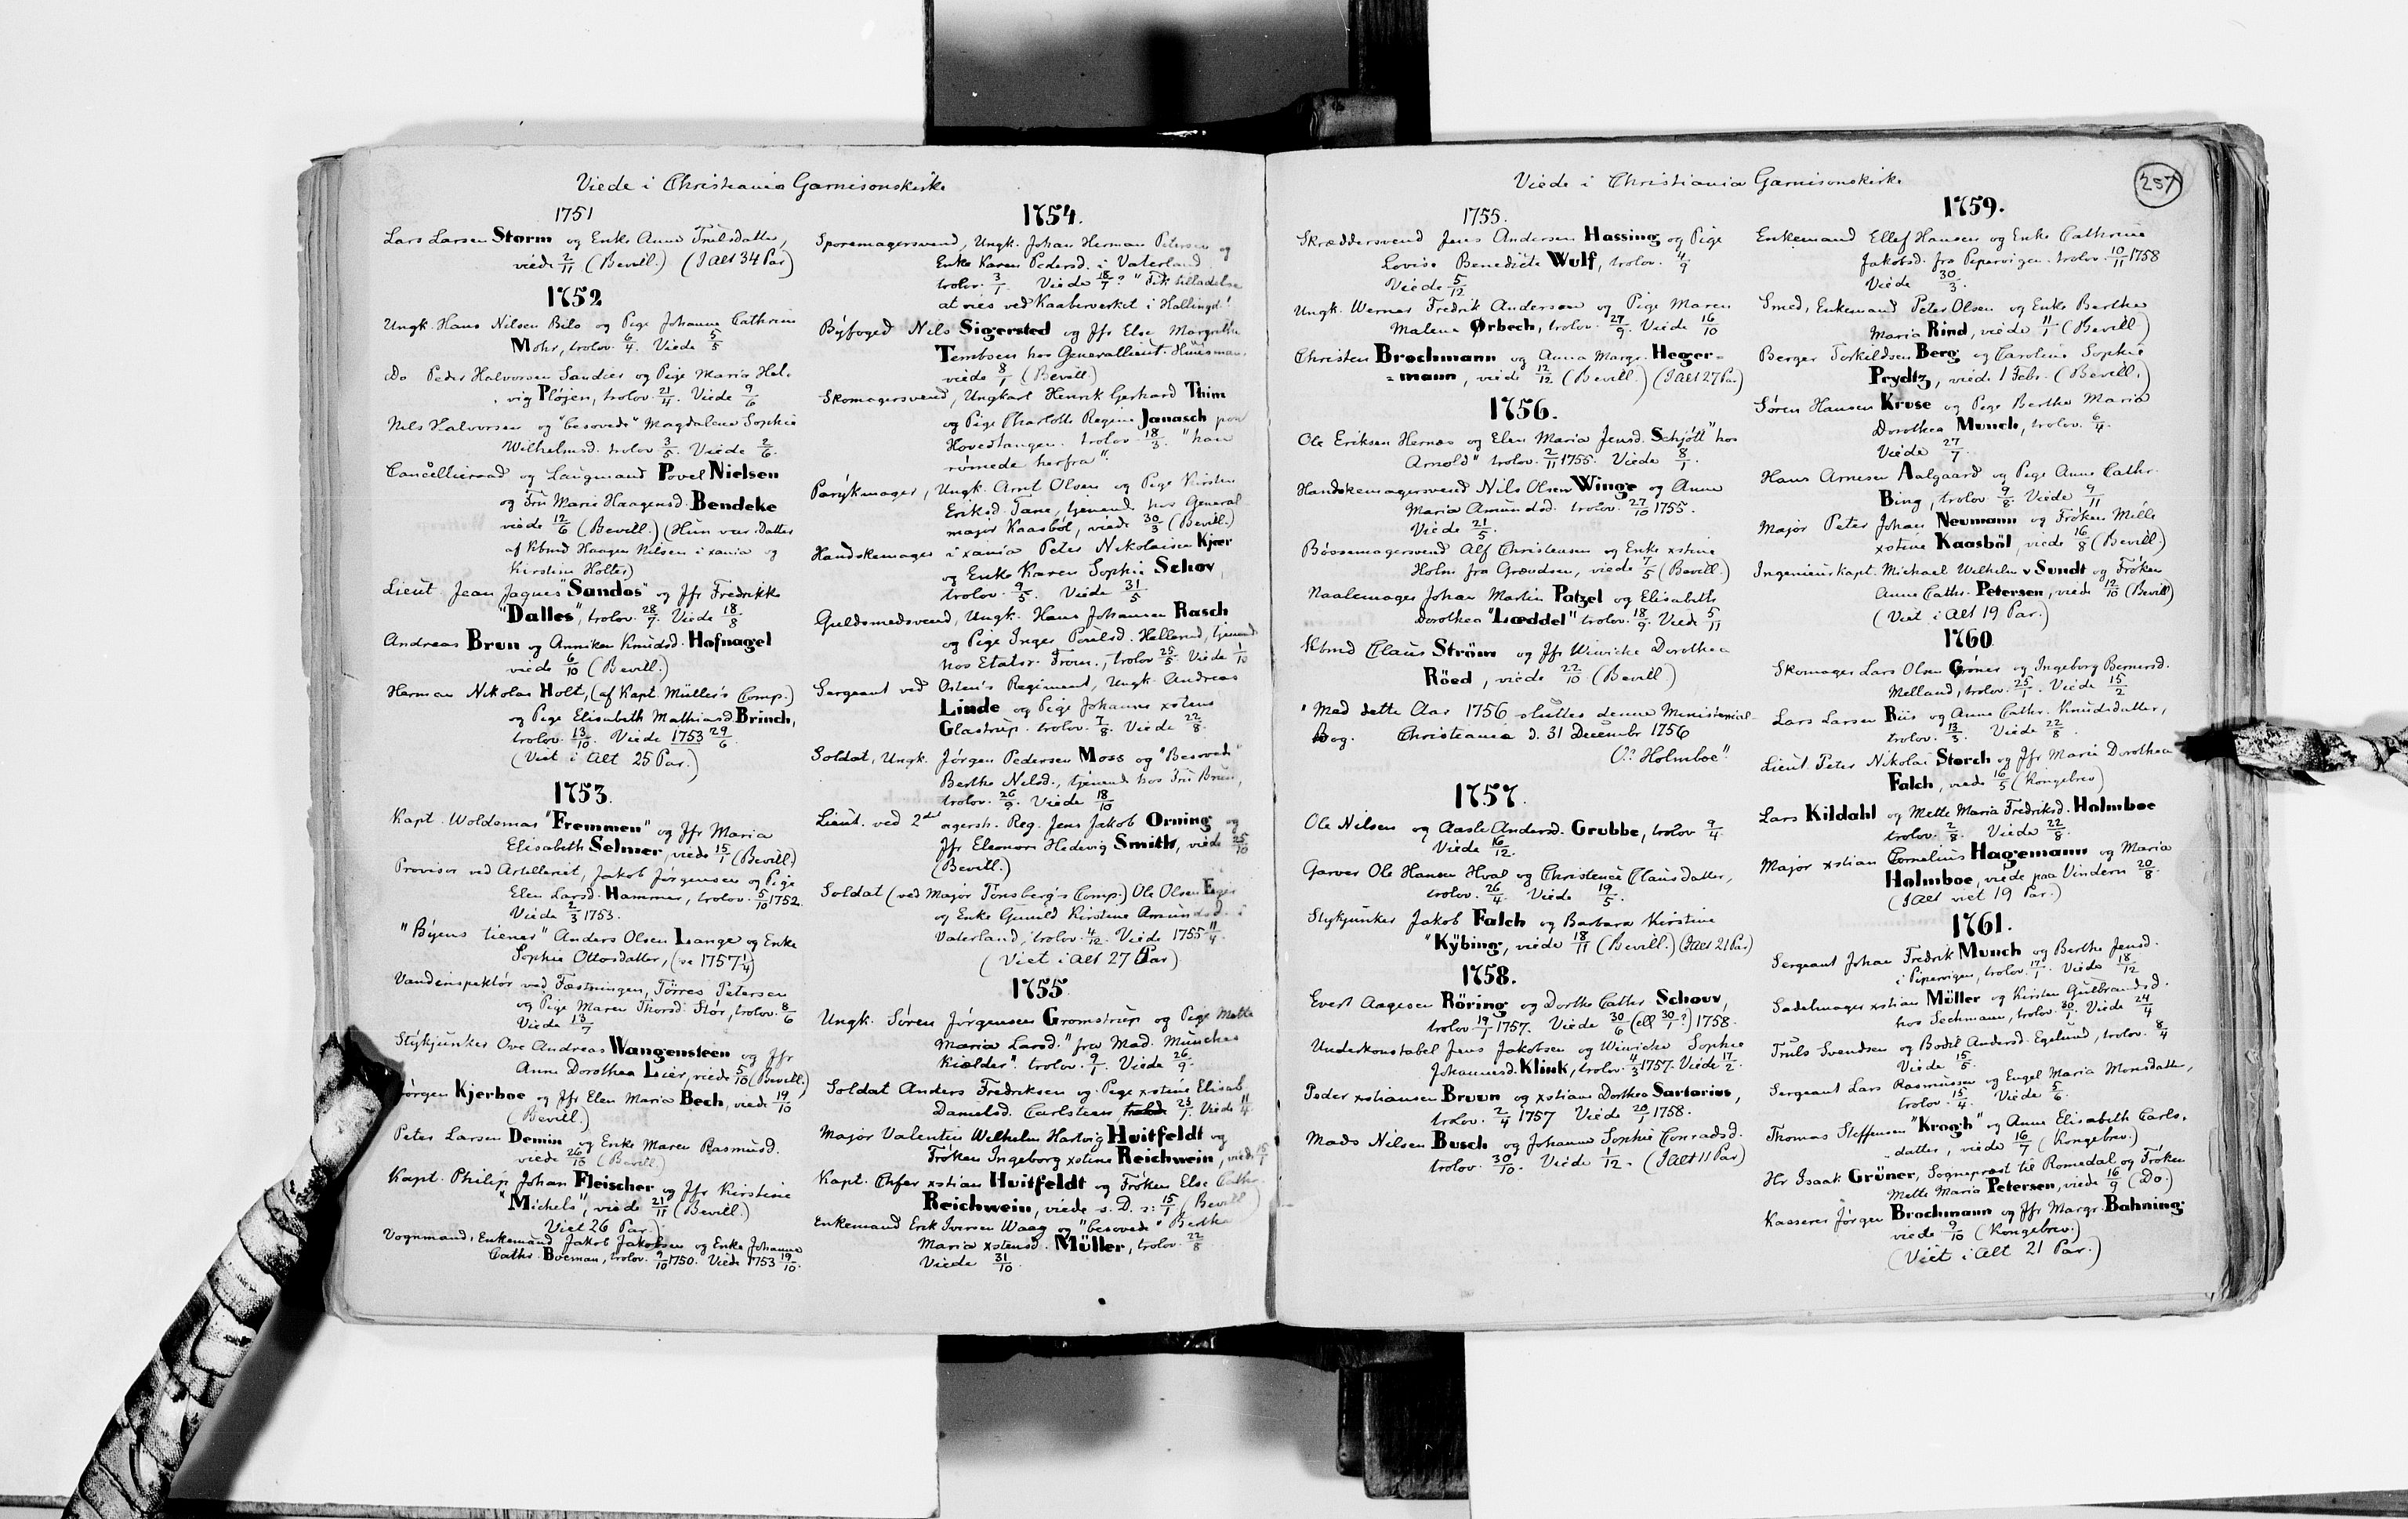 Viede i Christiania Garnisonskirke
1751
Lars Larsen Storm og Enke Anne Trulsdatter,
viede 2/11 (Bevill.) (I alt 34 Par)
1752
Ungk. Hans Nilsen Bilo og Pige Johanne Cathrine
Mohr, trolov. 6/4. Viede 5/5
Do Peder Halvorsen Sandier og Pige Maria Hel-
vig Pløjen, trolov. 21/4. Viede 9/6
Nils Halvorsen og "besovede" Magdalena Sophie
Wilhelmsd. trolov. 3/5. Viede 2/6.
Cancellieraad og Laugmand Povel Nielsen
og Fru Marie Haagensd. Bendeke
viede 12/6 (Bevill.) (Hun var Datter
af Kbmd Haagen Nilsen i xania og
Kirstine Holter)
Lieut Jean Jaques "Sandos" og Jfr Fredrikke
"Dalles", trolov. 28/7. Viede 18/8
Andreas Brun og Anniken Knudsd. Hofnagel
viede 6/10 (Bevill.)
Herman Nikolai Holt, (af Kapt. Müller's Comp.)
og Pige Elisabeth Mathiasd. Brinch,
trolov. 13/10. Viede 1753 29/6.
(Viet i Alt 25 Par.)
1753.
Kapt. Woldemar "Fremmen" og Jfr Maria
Elisabeth Selmer, viede 15/1 (Bevill.)
Provisor ved Artilleriet, Jakob Jørgensen og Pige
Elen Larsd. Hammer, trolov. 5/10 1752.
Viede 2/3 1753.
"Byens tiener" Anders Olsen Lange og Enke
Sophie Ottosdatter, (se 1757 1/4)
Vandinspektør ved Fæstningen, Törres Petersen
og Pige Maren Thorsd. Stör, trolov. 8/6
Viede 13/7
Stykjunker Ove Andreas Wangensteen og Jfr
Anne Dorothea Leier, viede 5/10 (Bevill.)
Jörgen Kjerboe og Jfr Elen Maria Bech, viede 19/10
(Bevill.)
Peter Larsen Demin og Enke Maren Rasmusd.
viede 26/10 (Bevill)
Kapt. Philip Johan Fleischer og Jfr Kirstine
"Michels", viede 21/11 (Bevill.)
Viet 26 Par.)
Vognmand, Enkemand Jakob Jakobsen og Enke Johanne
Cathr. Boeman, trolov. 9/10 1750. Viede 1753 19/10.
1754.
Sporemagersvend, Ungk. Johan Herman Petersen og
Enke Karen Pedersd. i Vaterland
trolov. 3/1. Viede 18/7? "Fik tilladelse
at vies ved Kaaberverket i Hallingd."
Byfoged Nils Sigersted og Jfr Else Margrethe
Tembsen hos Generallieut. Huusman.
viede 8/1 (Bevill.)
Skomagersvend, Ungkarl Henrik Gerhard Thim
og Pige Charlotte Regine Janasch paa
Hovedtangen. trolov. 18/3. "han
rømede herfra".
Parykmager, Ungk. Arnt Olsen og Pige Kirsten
Eriksd. Tane, tjenend. hos General-
major Kaasböl, viede 30/3 (Bevill.)
Handskemager i xania Peter Nikolaisen Kjær
og Enke Karen Sophie Schov,
trolov. 9/5. Viede 31/5
Guldsmedsvend, Ungk. Hans Johansen Rasch
og Pige Inger Poulsd. Hellerud, tjenend.
hos Etatsr. From., trolov. 25/5 Viede 1/10
Sergeant ved Osten's Regiment, Ungk. Andreas
Linde og Pige Johanne xstens
Glastrup. trolov. 7/8. Viede 22/8.
Soldat, Ungk. Jörgen Pedersen Moss og "Besovede"
Berthe Nilsd., tjenend. hos Fru Brun,
trolov. 26/9. Viede 18/10
Lieut. ved 2det agersh. Reg. Jens Jakob Orning og
Jfr Eleonore Hedevig Smith, viede 25/10
(Bevill.)
Soldat (ved Major Tonsberg's Comp.) Ole Olsen Eger
og Enke Gunild Kirstine Amundsd. i
Vaterland, trolov. 4/12. Viede 1755 11/4.
(Viet i Alt 27 Par)
1755
Ungk. Sören Jörgensen Gromstrup og Pige Mette
Maria Larsd. "fra Mad. Munches
Kielder". trolov. 9/1. Viede 26/9.
Soldat Anders Fredriksen og Pige xstine Elisab.
Danielsd. Carlsteen, 23/1. Viede 11/4
Major Valentin Wilhelm Hartvig Huitfeldt og
Fröken Ingeborg xstine Reichwein, viede 15/1
Kapt. Chfer xstian Huitfeldt og Fröken Else Cathr.
Reichwein, viede s. D. ɔ: 15/1 (Bevill)
Enkemand Erik Iversen Waag og "besovede" Berthe
Maria xstensd. Müller, trolov. 22/8
Viede 31/10.
Viede i Christiania Garnisonskirke
257
1755.
Skræddersvend Jens Andersen Hassing og Pige
Lovise Benedicte Wulf, trolov. 4/9
Viede 5/12
Ungk. Werner Fredrik Andersen og Pige Maren
Malene Ørbech, trolov. 27/9. Viede 16/10
Christen Brochmann og Anna Margr. Heger-
=mann, viede 12/12 (Bevill.) (I Alt 27 Par)
1756.
Ole Eriksen Hernæs og Elen Maria Jensd. Schjött "hos
Arnold" trolov. 2/11 1755. Viede 8/1.
Handskemagersvend Nils Olsen Winge og Anne
Maria Amundsd. trolov. 27/10 1755.
Viede 21/5.
Bössemagersvend Alf Christensen og Enke xstine
Holm fra Grændsen, viede 7/5 (Bevill.)
Naalemager Johan Martin Patzel og Elisabeth
Dorothea "Læddel" trolov. 18/9. Viede 5/11
Kbmd Claus Ström og Jfr Wiwicke Dorothea
Röed, viede 22/10 (Bevill.)
"Med dette Aar 1756 sluttes denne Ministerial-
Bog. Christiania d. 31 Decembr 1756
Holmboe".
1757.
Ole Nilsen og Aasle Andersd. Grubbe, trolov 9/4
Viede 16/12.
Garver Ole Hansen Hval og Christence Clausdatter,
trolov. 26/4. Viede 19/5.
Stykjunker Jakob Falch og Barbara Kirstine
"Kÿbing, viede 18/11 (Bevill.) (I alt 21 Par)
1758.
Evert Aagesen Röring og Dorthe Cathr Schouv,
trolov. 19/1 1757. Viede 30/6 (ell 30/1?) 1758.
Underkonstabel Jens Jakobsen og Wiwicke Sophie
Johannesd. Klink, trolov. 4/3 1757. Viede 17/2.
Peder xstiansen Bruun og xstiane Dorthea Sartorius,
trolov. 2/4 1757 Viede 20/1 1758.
Mads Nilsen Busch og Johanne Sophie Conradsd.
trolov. 30/10. Viede 1/12. (I Alt 11 Par)
1759.
Enkemand Ellef Hansen og Enke Cathrine
Jakobsd. fra Pepervigen. trolov. 10/11 1758
Viede 30/3.
Smed, Enkemand Peter Olsen og Enke Berthe
Maria Rind, viede 11/1 (Bevill)
Berger Torkildsen Berg og Caroline Sophie
Prydtz, viede 1 Febr. (Bevill.)
Søren Hansen Kruse og Pige Berthe Maria
Dorothea Munch, trolov. 6/4.
Viede 27/7
Hans Arnesen Aalgaard og Pige Anne Cathr.
Bing, trolov. 9/8. Viede 9/11
Major Peter Johan Neumann og Fröken Mille
xstine Kaasböl, viede 16/8 (Bevill.)
Ingenieurkapt. Michael Wilhelm v Sundt og Fröken
Anne Cathr. Petersen, viede 12/10 (Bevill)
(Viet i Alt 19 Par.)
1760
Skomager Lars Olsen Gröner og Ingeborg Bernersd.
Melland, trolov. 25/1. Viede 15/2
Lars Larsen Riis og Anne Cathr. Knudsdatter,
trolov. 13/3. Viede 22/8.
Lieut. Peter Nikolai Storch og Jfr Marie Dorothea
Falch, viede 16/5 (Kongebrev)
Lars Kildahl og Mette Maria Fredriksd. Holmboe
trolov. 2/8. Viede 22/8.
Major xstian Cornelius Hagemann og Maria
Holmboe, viede paa Vindern 20/8.
(I Alt viet 19 Par.)
1761.
Sergeant Johan Fredrik Munch og Berthe Jensd.
i Pipervigen, trolov. 17/1. Viede 18/12
Sadelmager xstian Müller og Kirsten Gulbrandsd.
hos Sechmann, trolov. 30/1. Viede 24/4
Truls Svendsen og Bodil Andersd. Egelund, trolov. 8/4
Viede 15/5.
Sergeant Lars Rasmussen og Engel Maria Monsdatter,
trolov. 15/4. Viede 5/6.
Thomas Steffensen "Krogh" og Anne Elisabeth Carls-
datter, viede 16/7 (Kongebrev.)
Hr Isaak Grüner, Sognepræst til Romedal og Fröken
Mette Maria Petersen, viede 16/9 (Do.)
Kasserer Jörgen Brochmann og Jfr Margr. Bahning
viede 9/10 (Kongebrev.)
(Viet i Alt 21 Par.)